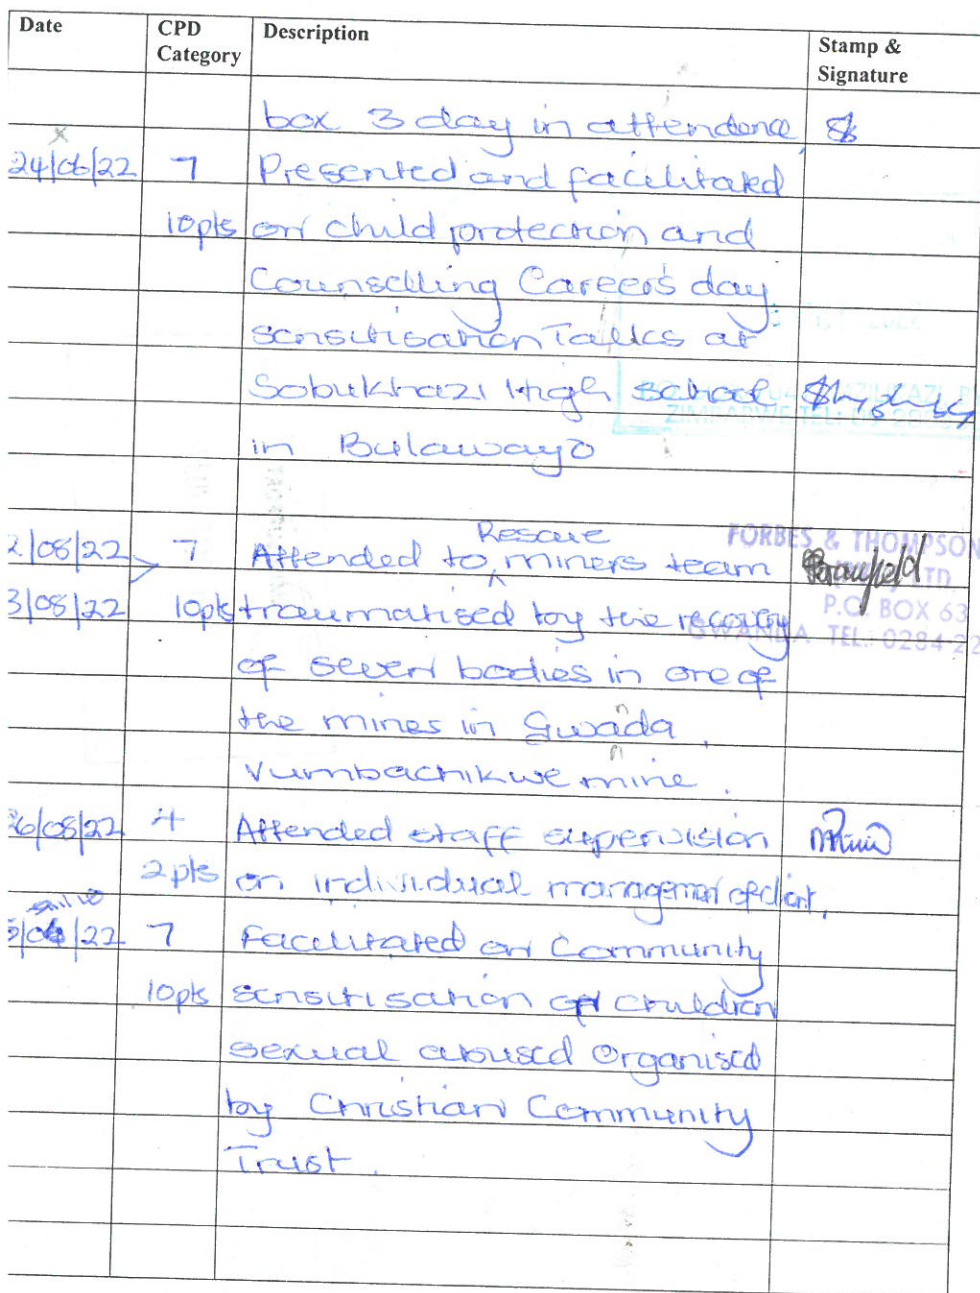 Date CPD Category Description Stamp & Signature
box 3 day in attendence
24/06/22 7 Presented and facilitated
10pts on child protection and
Counselling Careers day
sensitisation Talks at
Sobukhazi High school
ZIMBABWE TEL: 09
in Bulawayo
Rescue
FORBES & THOMPSON
2/08/22 7 Attended to miners team
3/08/22 10pts traumatised by the recovery
P.O. BOX 63
GWANDA TEL: 0284-22
of seven bodies in one of
the mines in Gwanda
Vumbachikwe mine.
26/08/22 4 Attended staff supervision
2pts on individual management of client.
/22 7 Facilitated on Community
10pts sensitisation of children
sexual abused Organised
by Christian Community
Trust.